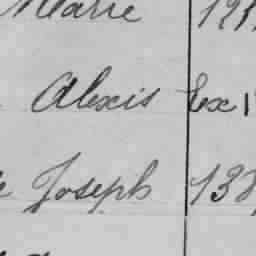 Marie
Alexis Ex
Joseph 138